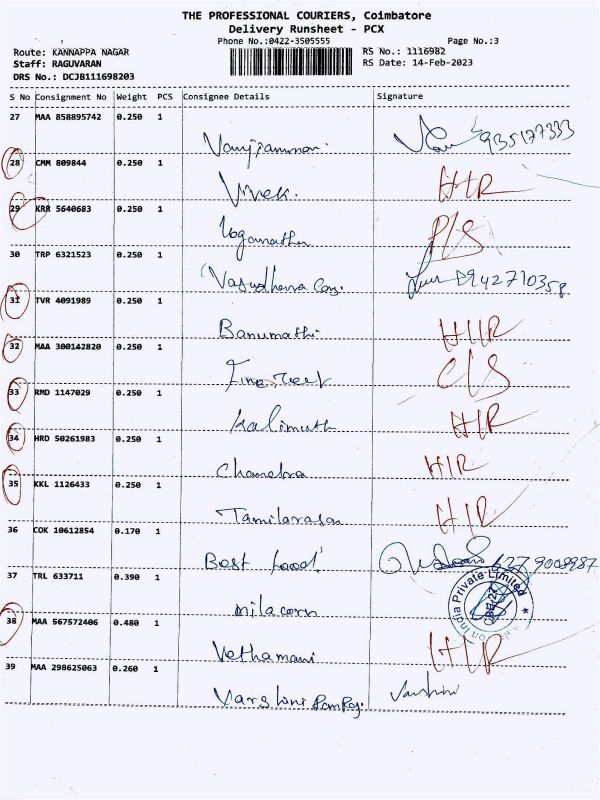 THE PROFESSIONAL COURIERS, Coimbatore
Delivery Runsheet - PCX
Phone No.:0422-3505555 Page No.:3
Route: KANNAPPA NAGAR RS No.: 1116982
Staff: RAGUVARAN RS Date: 14-Feb-2023
DRS No.: DCJB111698203
S No Consignment No Weight PCS Consignee Details Signature
27 MAA 858895742 0.250 1
28 CMM 809844 0.250 1
Vivek. HIR
29 KRR 5640683 0.250 1
loganathan P/S
30 TRP 6321523 0.250 1
Vasudhara 8942710358
31 TVR 4091989 0.250 1
Banumathi. HIR
32 MAA 300142820 0.250 1
C/S
33 RMD 1147029 0.250 1
Kalimuth HIR
34 HRD 50261983 0.250 1
Chandra HIR
35 KKL 1126433 0.250 1
Tamilarasan HIR
36 COK 10612854 0.170 1
Best food
37 TRL 633711 0.390 1
milacorn India Private Limited
38 MAA 567572406 0.480 1
Vethamani HIR
39 MAA 298625063 0.260 1
Varshini Ramraj. Varshini